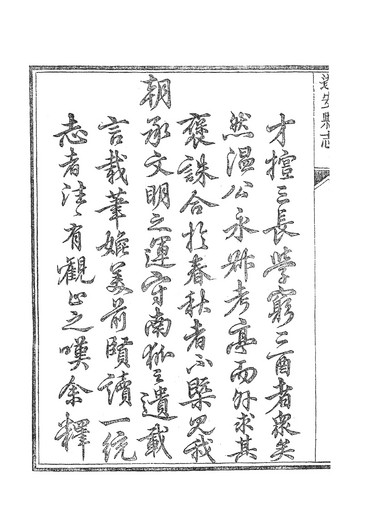 才擅三長學窮二酉者衆矣
然温公永叔考亭而外求其
褒誅合於春秋者不槩見我
朝承文明之運守南狐之遺載
言載筆媲美前賢讀一統
志者洋〻有觀止之嘆余釋
縣志